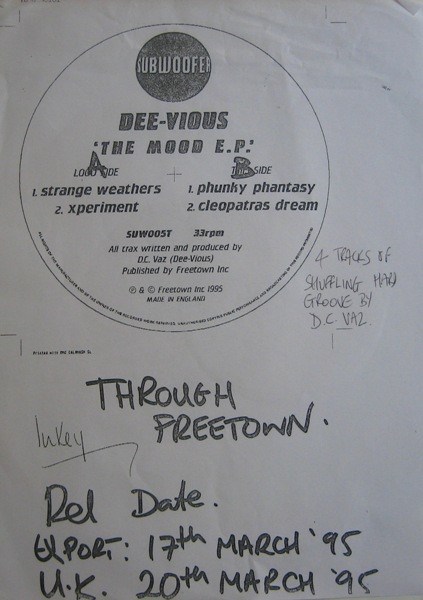 SUBWOOFER
DEE-VIOUS
'THE MOOD E.P.'
A SIDE
B SIDE
1. strange weathers
2. xperiment
1. phunky phantasy
2. cleopatras dream
SUW005T 33rpm
All trax written and produced by
D.C. Vaz (Dee-Vious)
Published by Freetown Inc
℗ & © Freetown Inc 1995
MADE IN ENGLAND
4 TRACKS OF
SHUFFLING HARD
GROOVE BY
D.C. VAZ.
THROUGH
FREETOWN.
Rel Date.
EXPORT: 17th MARCH '95
U.K. 20th MARCH '95